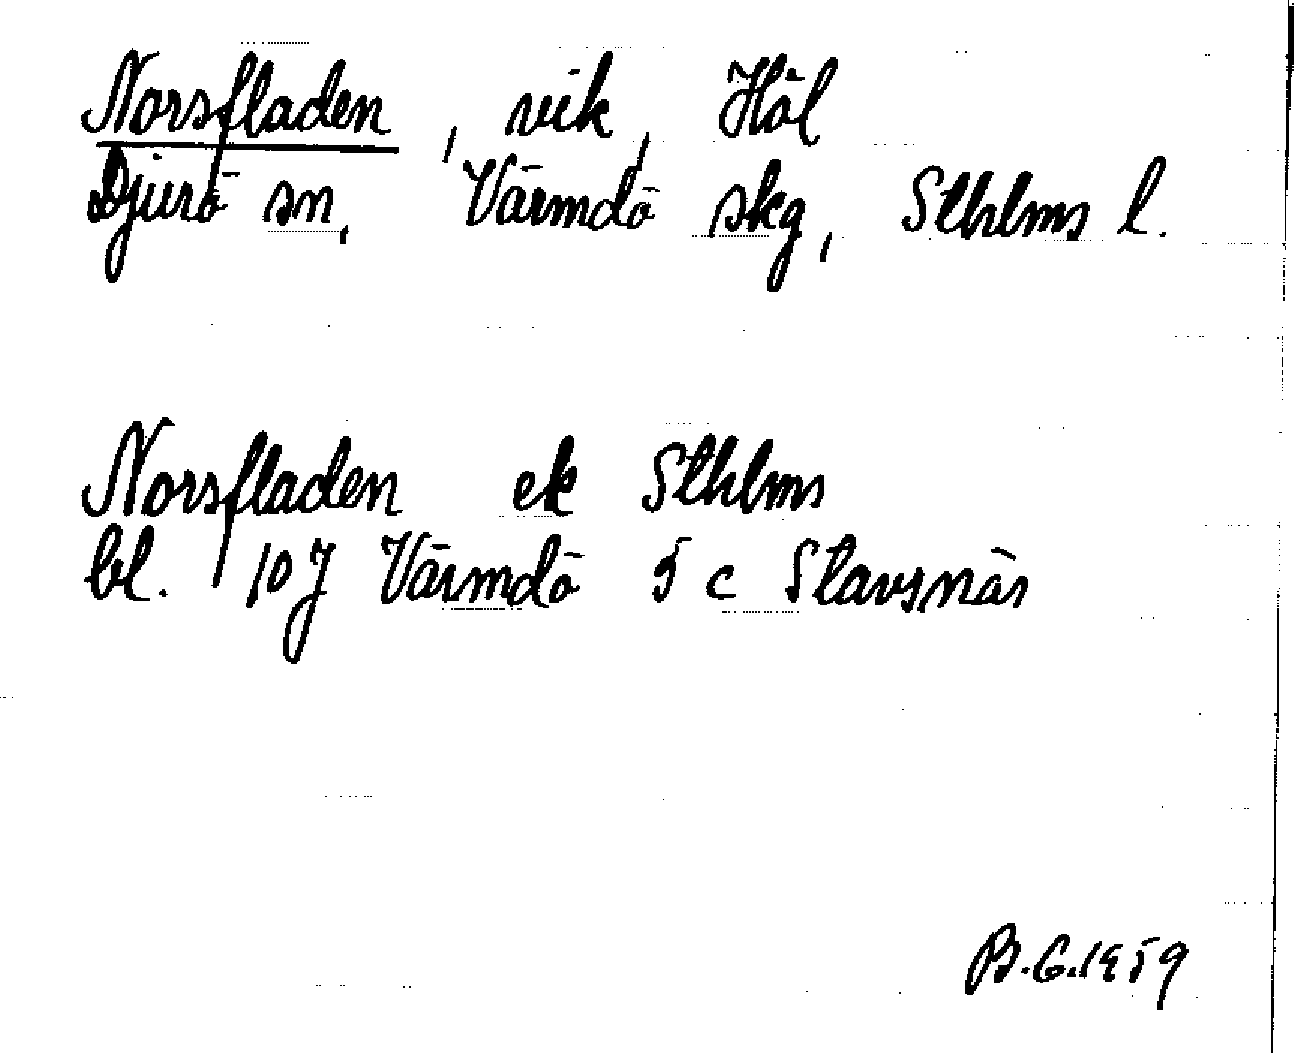 Norsfladen, vik, Hål
Djurö sn, Värmdö skg, Sthlms l.
Norsfladen ek Sthlms
bl. 10J Värmdö 5 c Stavsnäs
B.G. 1959